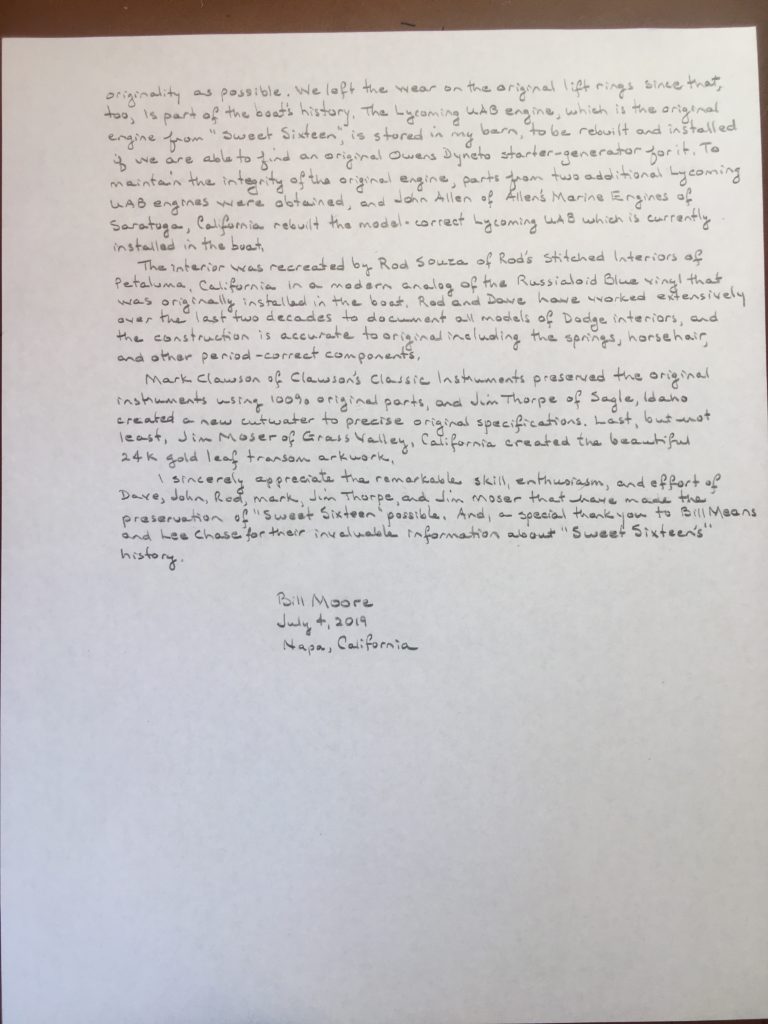 originality as possible. We left the wear on the original lift rings since that,
too, is part of the boat's history. The Lycoming UAB engine, which is the original
engine from "Sweet Sixteen", is stored in my barn, to be rebuilt and installed
if we are able to find an original Owens Dyneto starter-generator for it. To
maintain the integrity of the original engine, parts from two additional Lycoming
UAB engines were obtained, and John Allen of Allen's Marine Engines of
Saratoga, California rebuilt the model-correct Lycoming UAB which is currently
installed in the boat.
The interior was recreated by Rod Souza of Rod's Stitched Interiors of
Petaluma, California in a modern analog of the Russialoid Blue vinyl that
was originally installed in the boat. Rod and Dave have worked extensively
over the last two decades to document all models of Dodge interiors, and
the construction is accurate to original including the springs, horsehair,
and other period-correct components.
Mark Clawson of Clawson's Classic Instruments preserved the original
instruments using 100% original parts, and Jim Thorpe of Sagle, Idaho
created a new cutwater to precise original specifications. Last, but not
least, Jim Moser of Grass Valley, California created the beautiful
24k gold leaf transom artwork.
I sincerely appreciate the remarkable skill, enthusiasm, and effort of
Dave, John, Rod, Mark, Jim Thorpe, and Jim Moser that have made the
preservation of "Sweet Sixteen" possible. And, a special thank you to Bill Means
and Lee Chase for their invaluable information about "Sweet Sixteen's"
history.
Bill Moore
July 4, 2019
Napa, California